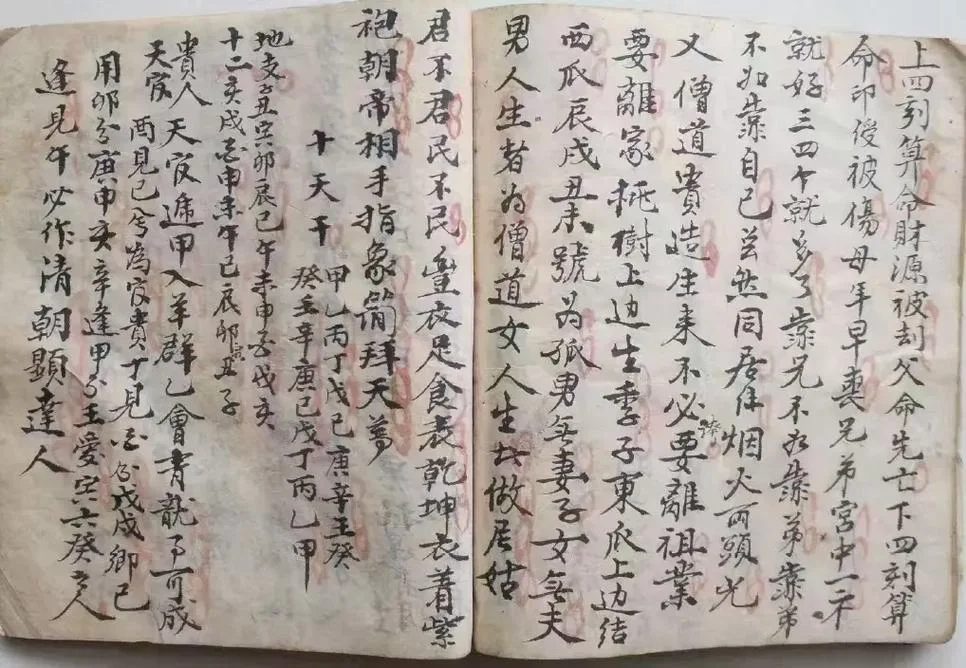 上四刻算命財源被刦父命先亡下四刻算
命印綬被傷母年早喪兄弟宮中一个
就好三四个就多了靠兄不如靠弟靠弟
不如靠自己茲然同居住烟火两頭光
又僧道貴造生来不必要離祖業
要離家桃樹上边生季子東瓜上边结
西瓜辰戌丑未號为孤男無妻子女無夫
男人生者为僧道女人生此做居姑
君不君民不民豊衣足食表乾坤衣着紫
袍朝帝相手指象简拜天尊
十天干
甲乙丙丁戊己庚辛壬癸
癸壬辛庚己戊丁丙乙甲
地支子丑寅卯辰巳午未申子戌亥
十二亥戌酉申未午巳辰卯寅丑子
貴人天官遁甲入羊群乙會青龍事可成
天官酉見巳兮为官貴丁見酉戊戌卿己
用卯兮庚申亥辛逢甲兮壬愛寅六癸之人
逢見午必作清朝顯達人